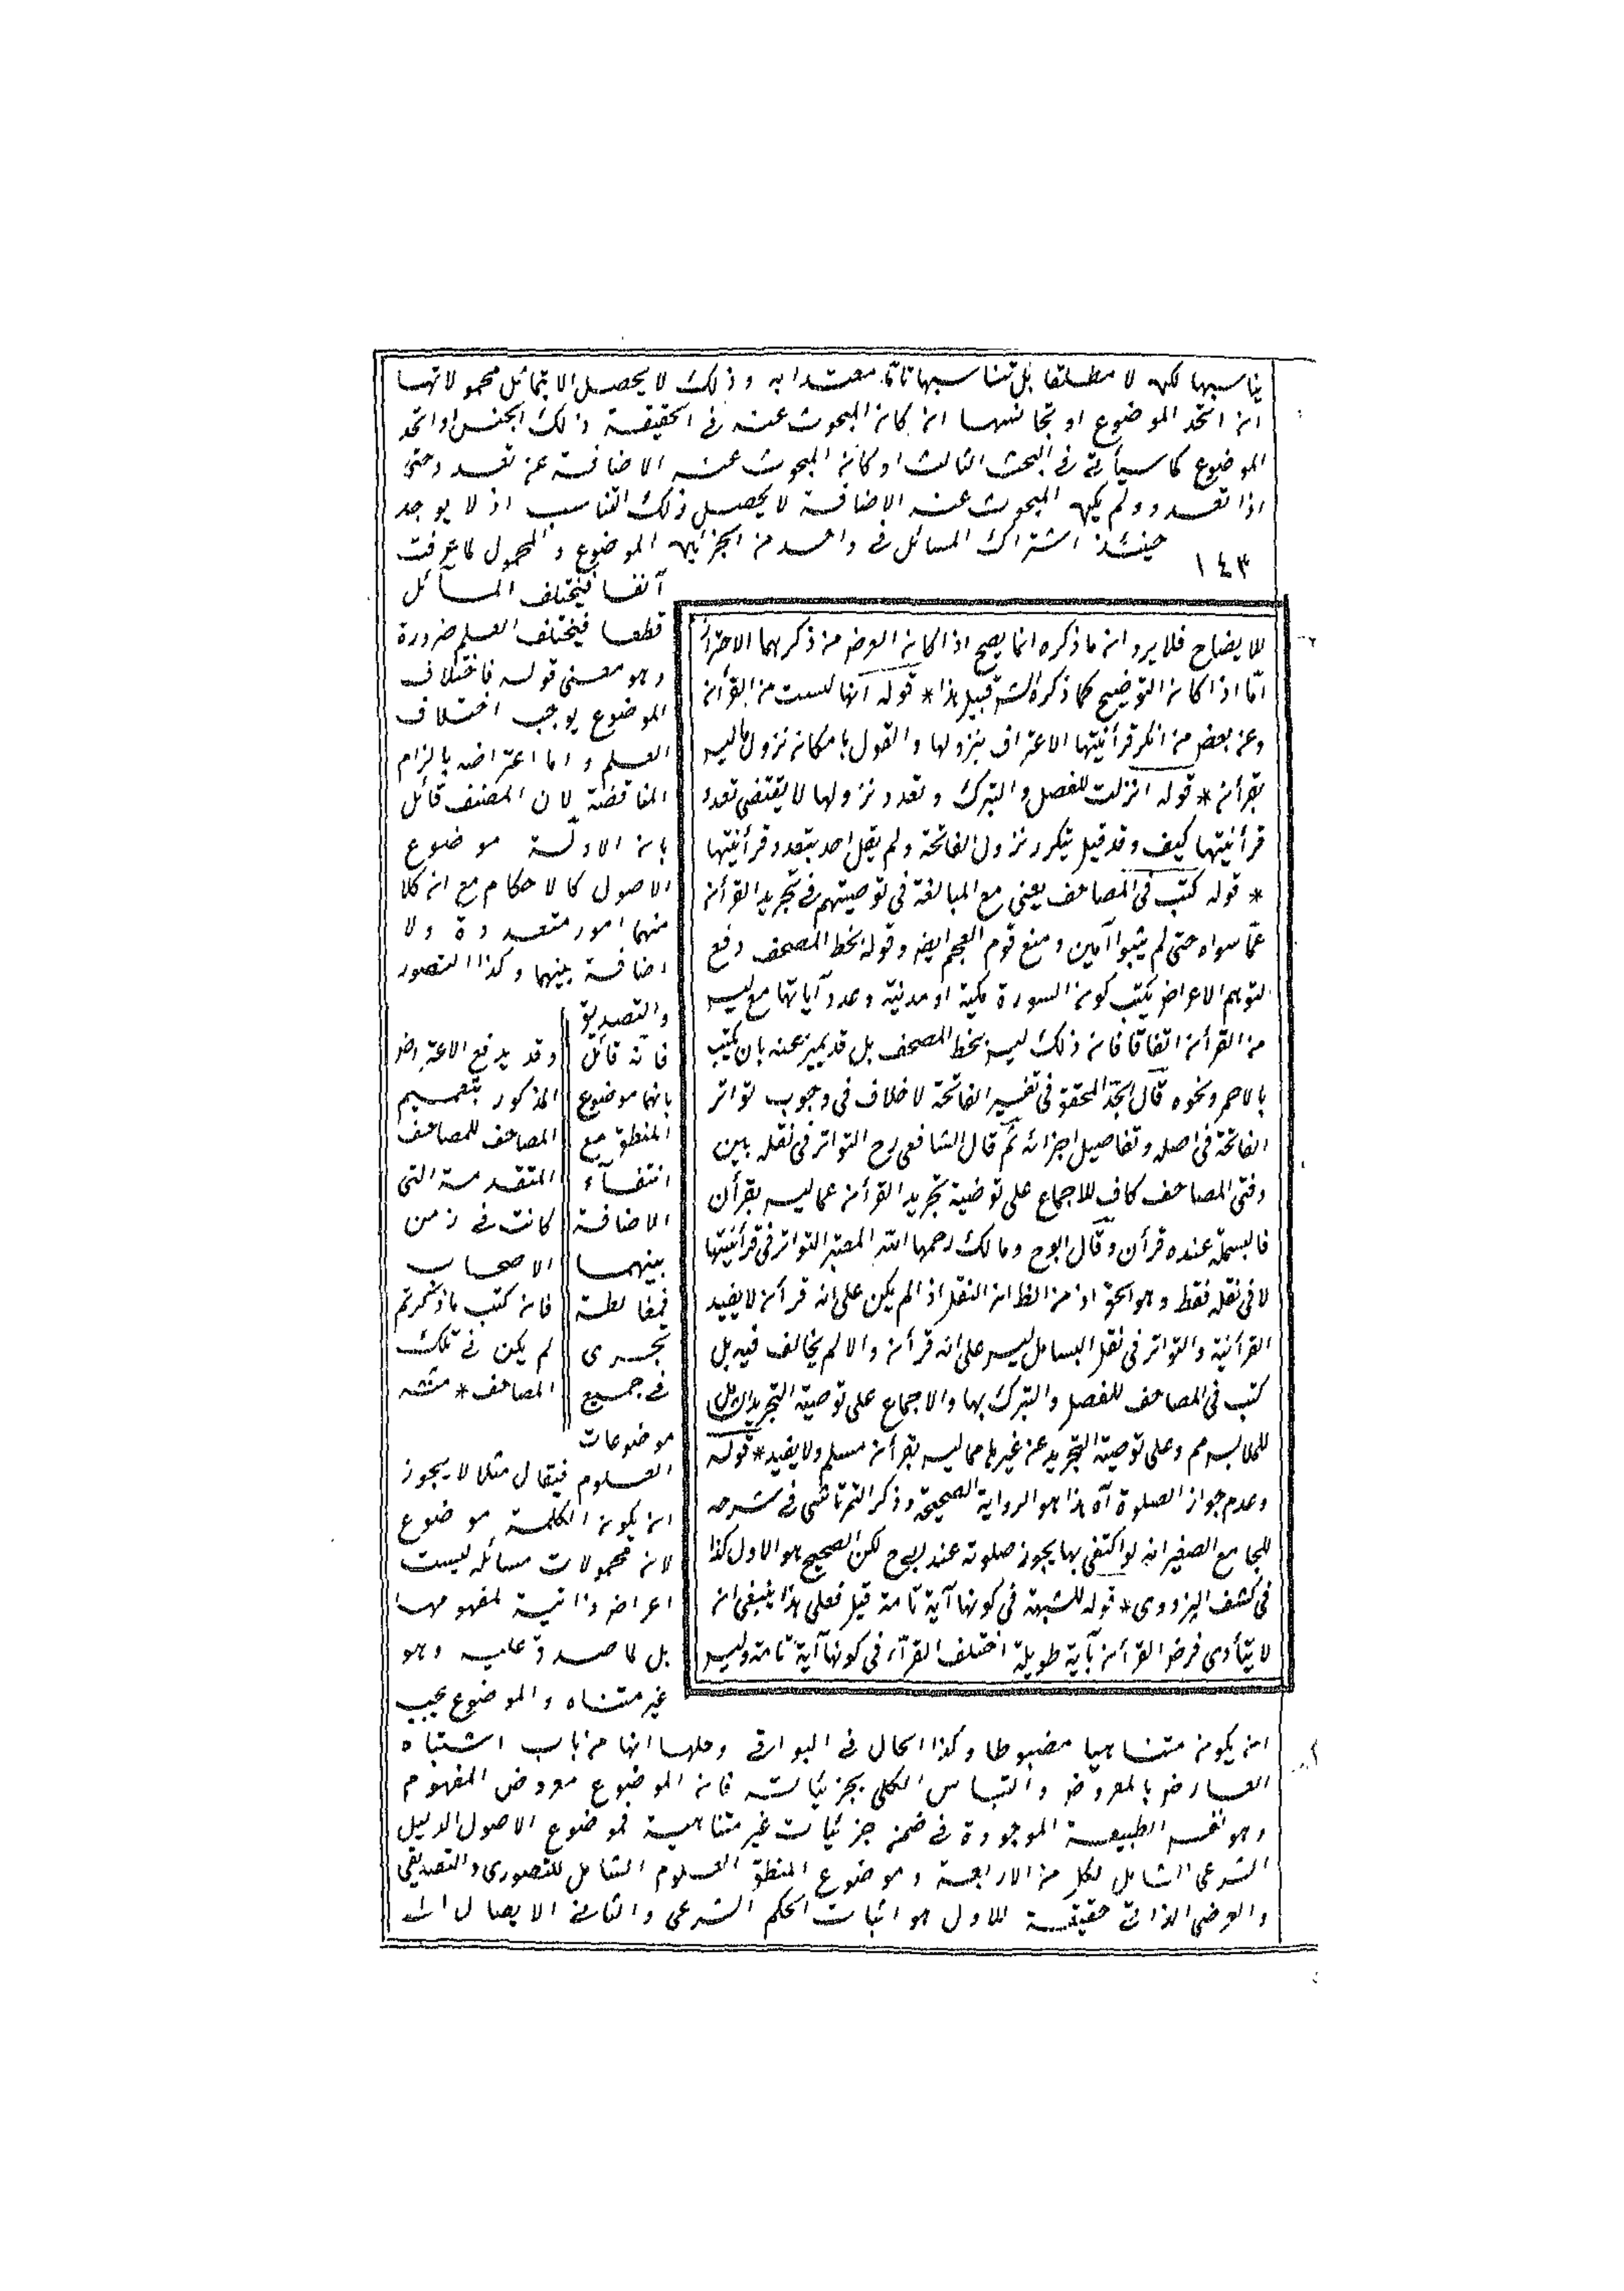 يناسبها لكن لا مطلقا بل تناسبها تاما معتدا به وذلك لا يحصل الا بتماثل محمولاتها
ان اتحد الموضوع او تجانسها ان كان المبحوث عنه فى الحقيقة ذلك الجنس او اتحد
الموضوع كما سيأتى فى البحث الثالث او كان المبحوث عنه الاضافة عن تعدد وحتى
اذا تعدد ولم يكن المبحوث عنه الاضافة لا يحصل ذلك التناسب اذ لا يوجد
حينئذ اشتراك المسائل فى واحد من الجزئين الموضوع والمحمول كما عرفت
١٤٣
آنفا فيختلف المسائل
قطعا فيختلف العلم ضرورة
وهو معنى قوله فاختلاف
الموضوع يوجب اختلاف
العلم واما اعتراضه بالزام
المناقضة لان المصنف قائل
بان الادلة موضوع
الاصول كالاحكام مع ان كلا
منهما امور متعددة ولا
اضافة بينهما وكذا التصور
والتصديق
فانه قائل
بانهما موضوع
المنطق مع
انتفاء
الاضافة
بينهما
فمغالطة
تجرى
فى جميع
موضوعات
العلوم فيقال مثلا لا يجوز
ان يكون الكلمة موضوع
لان محمولات مسائله ليست
اعراضا ذاتية لمفهومها
بل لما صدق عليه وهو
غير متناه والموضوع يجب
ان يكون متناهيا مضبوطا وكذا الحال فى البواقى وحلها انها من باب اشتباه
العارض بالمعروض والتباس الكلى بجزئياته فان الموضوع معروض المفهوم
وهو نفس الطبيعة الموجودة فى ضمن جزئيات غير متناهية فموضوع الاصول الدليل
الشرعى الشامل لكل من الاربعة وموضوع المنطق المعلوم الشامل للتصورى والتصديقى
والعرضى الذاتى حقيقة للاول هو اثبات الحكم الشرعى والثانى الايصال الى
وقد يدفع الاعتراض
المذكور بتعميم
المصاحف للمصاحف
المتقدمة التى
كانت فى زمن
الاصحاب
فان كتب ما ذكرتم
لم يكن فى تلك
المصاحف * منه
للايضاح فلا يرد ان ما ذكره انما يصح اذا كان الغرض من ذكرهما الاحتراز
امّا اذا كان التوضيح كما ذكره الش قبيل هذا * قوله انها ليست من القرأن
وعن بعض من انكر قرأنيتها الاعتراف بنزولها والقول بامكان نزول ما ليس
بقرأن * قوله انزلت للفصل والتبرك وتعدد نزولها لا يقتضى تعدد
قرأنيتها كيف وقد قيل بتكرر نزول الفاتحة ولم يقل احد بتعدد قرأنيتها
* قوله كتب فى المصاحف يعنى مع المبالغة فى توصيتهم فى تجريد القرأن
عمّا سواه حتى لم يثبوا آمين ومنع قوم العجم ايضا وقوله بخط المصحف دفع
لتوهم الاعراض بكتب كون السورة مكية او مدنية وعدد آياتها مع ليس
من القرأن اتفاقا فان ذلك ليس بخط المصحف بل قد يميز عنه بان يكتب
بالاحمر ونحوه قال الجد المحقق فى تفسير الفاتحة لا خلاف فى وجوب تواتر
الفاتحة فى اصله وتفاصيل اجزائه ثم قال الشافعى رح التواتر فى نقله بين
دفتى المصاحف كاف للاجماع على توصية تجريد القرأن عما ليس بقرأن
فالبسملة عنده قرأن وقال ابوح ومالك رحمهما الله المعتبر التواتر فى قرأنيتها
لا فى نقله فقط وهو الحق اذ من الظ ان النقل اذا لم يكن على انه قرأن لا يفيد
القرأنية والتواتر فى نقل البسامل ليس على انه قرأن والا لم يخالف فيه بل
كتب فى المصاحف للفصل والتبرك بها والاجماع على توصية التجريد الشامل
للملابس مم وعلى توصية التجريد عن غيرها مما ليس بقرأن مسلم ولا يفيد * قوله
وعدم جواز الصلوة آه هذا هو الرواية الصحيحة وذكر التمرتاشى فى شرحه
للجامع الصغير انه لو اكتفى بها يجوز صلوته عند ابيح لكن الصحيح هو الاول كذا
فى كشف البزدوى * قوله للشبهة فى كونها آية تامة قيل فعلى هذا ينبغى ان
لا يتأدى فرض القرأن بآية طويلة اختلف القرّاء فى كونها آية تامة وليس